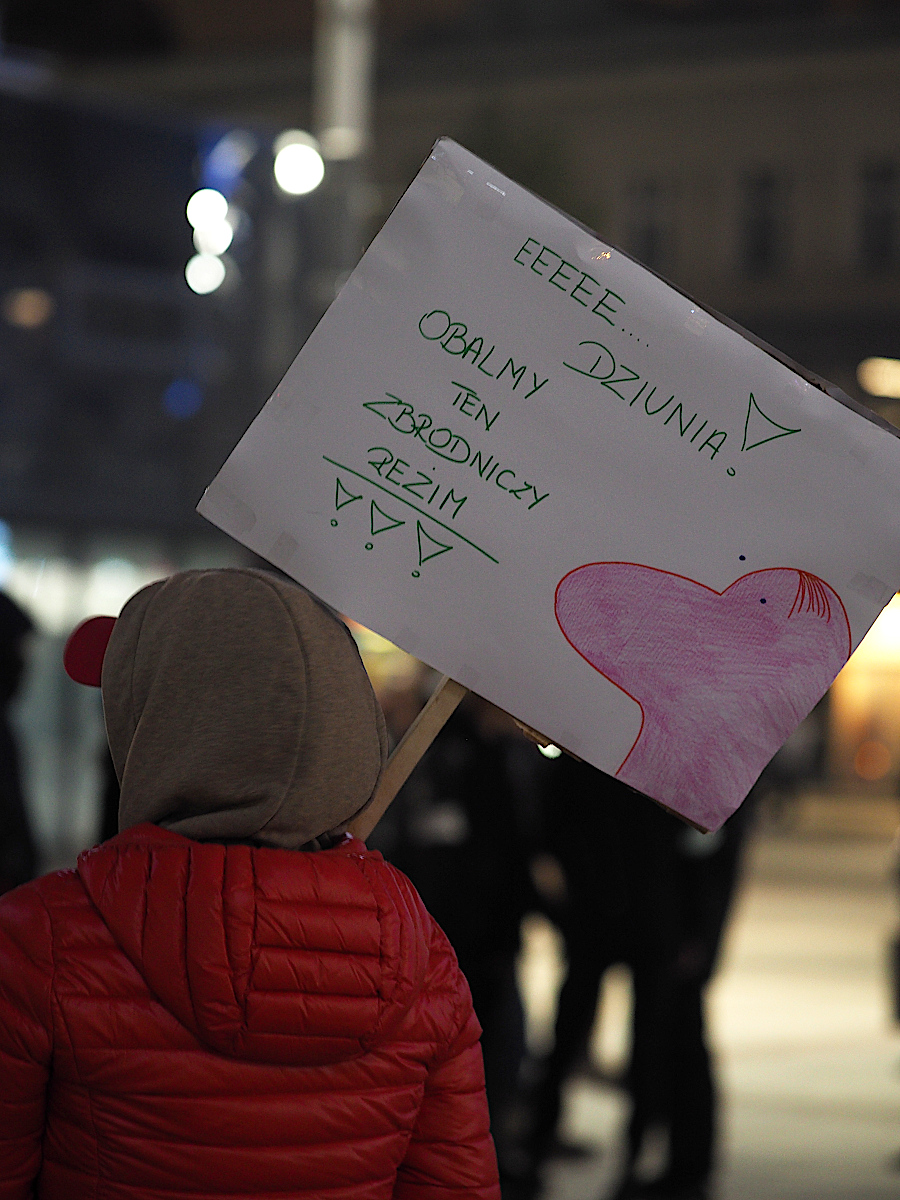 EEEEE.....
DZIUNIA!
OBALMY
TEN
ZBRODNICZY
REŻIM
!!!